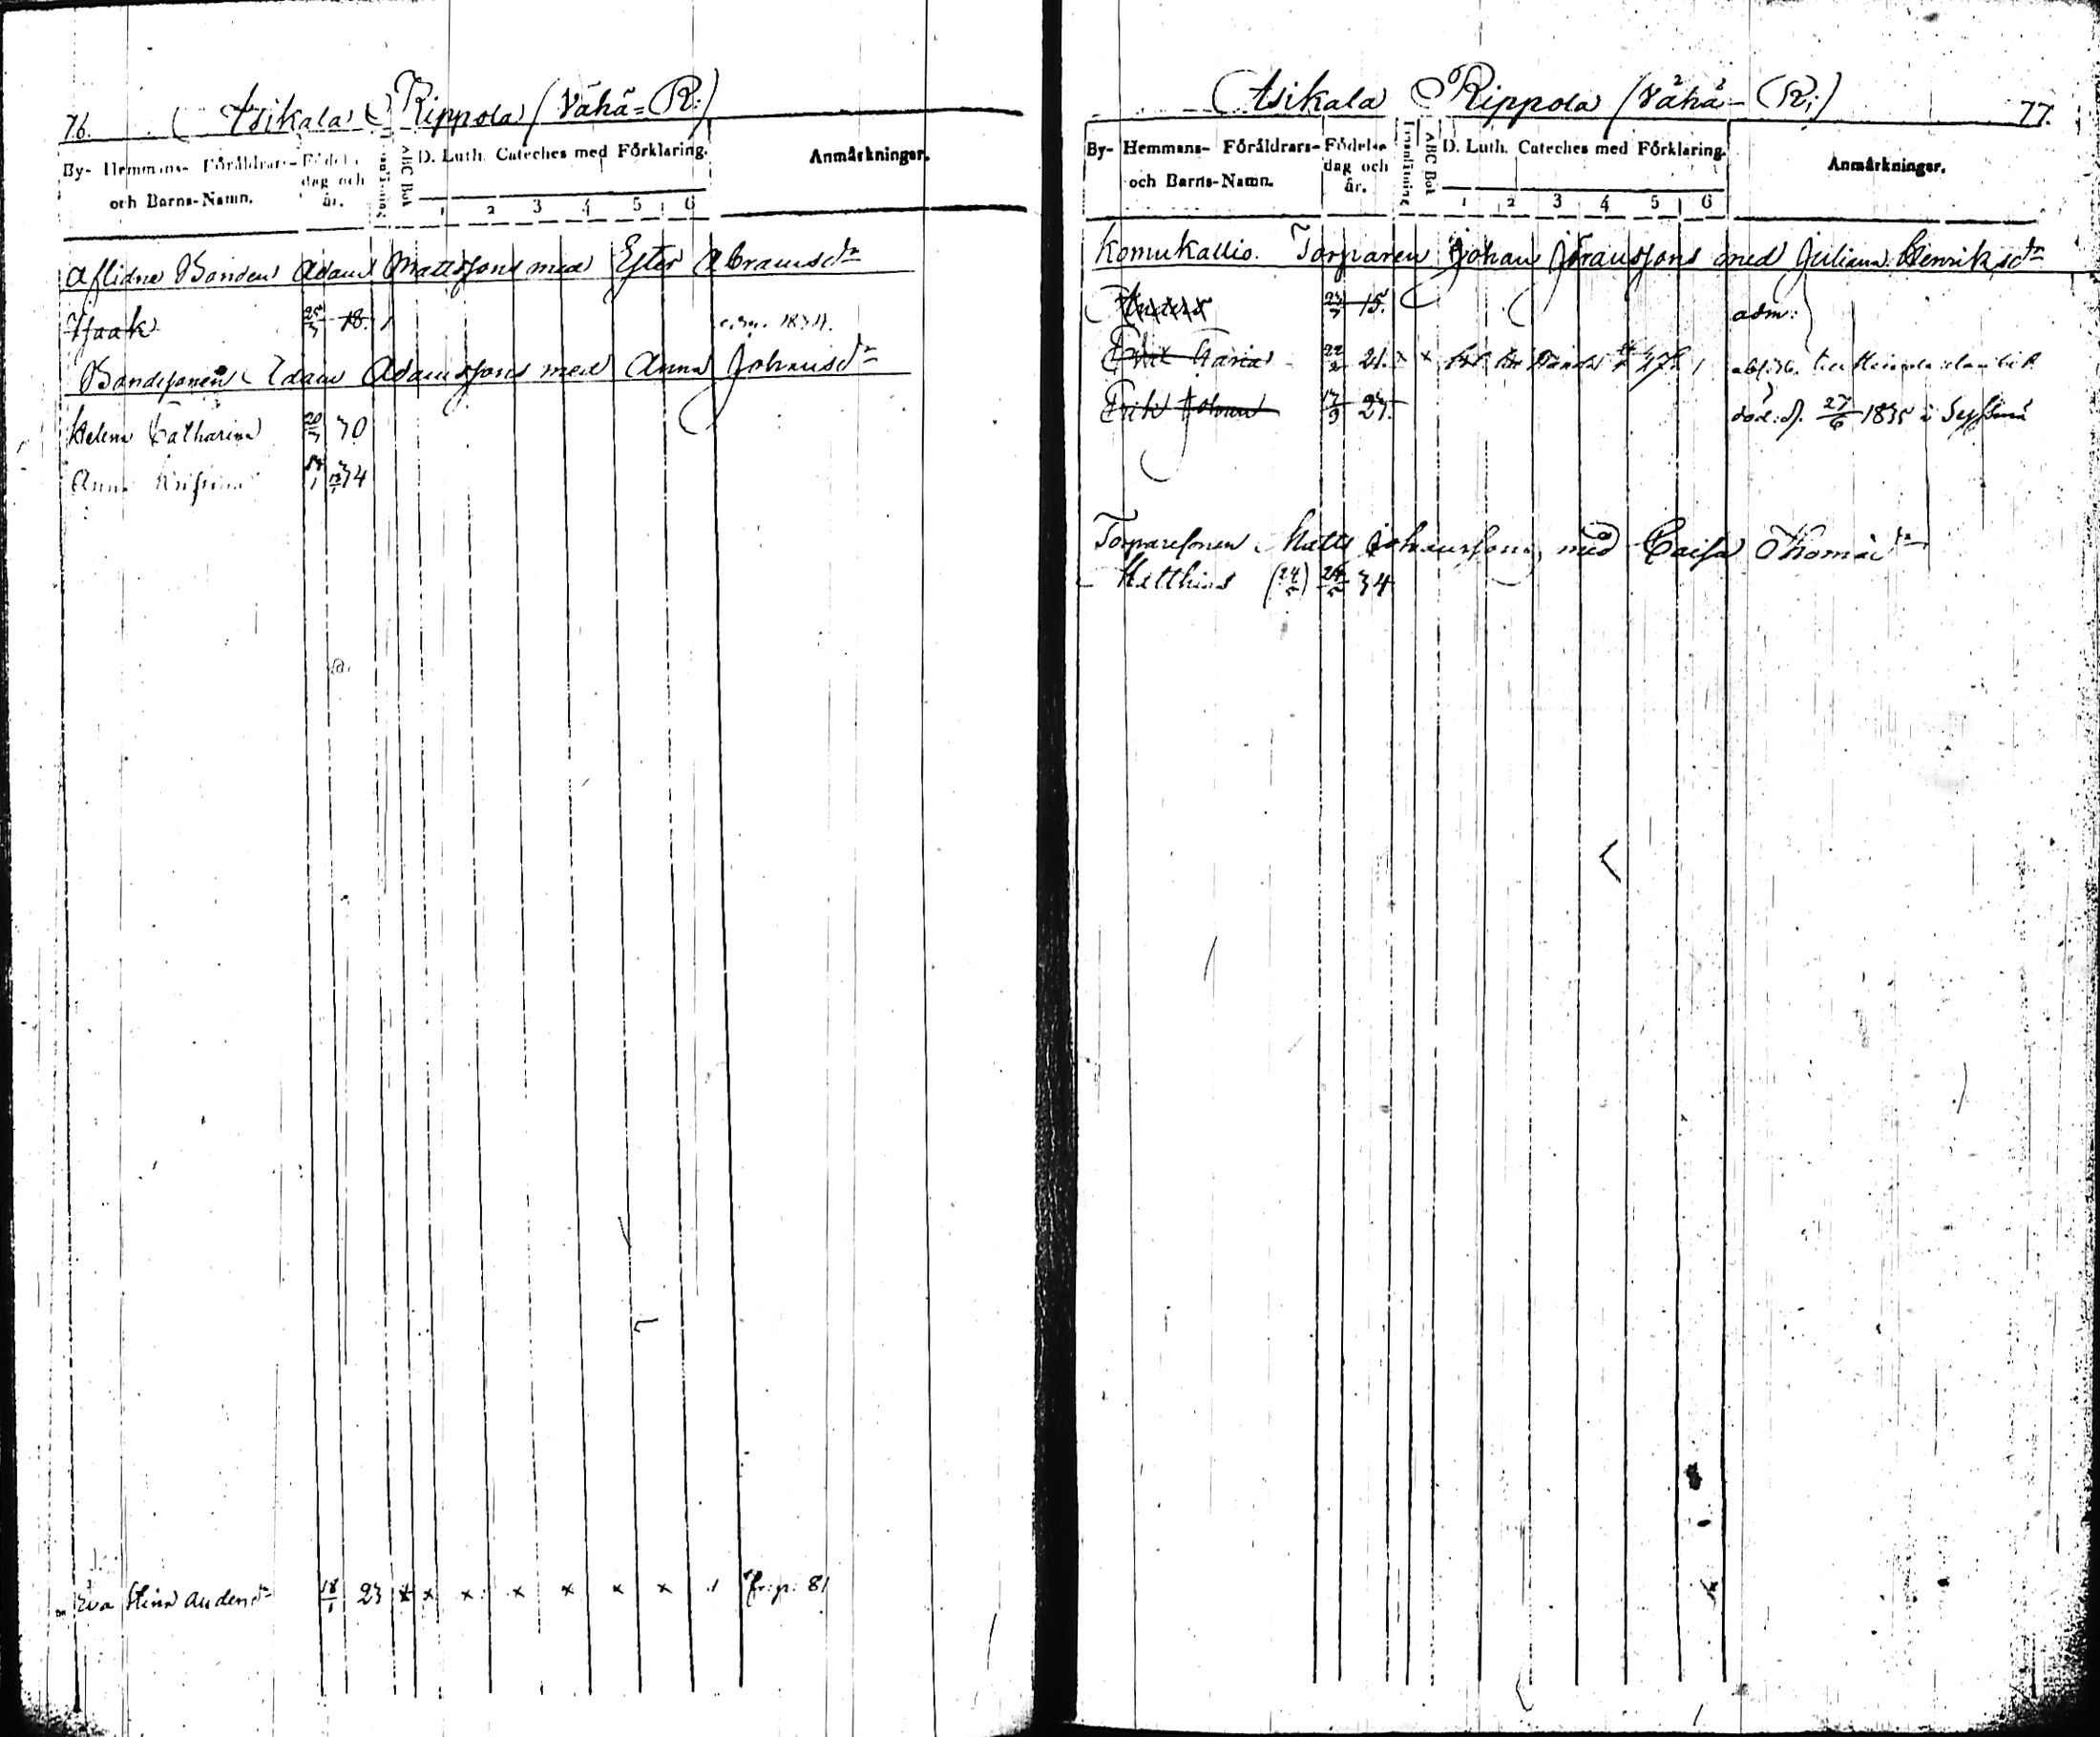 76. Asikala Rippola (Vähä=R:)
By- Hemmans- Föräldrars- och Barns-Namn. Födelse dag och år. ABC Bok D. Luth. Cateches med Förklaring. Anmärkningar.
1 2 3 4 5 6
Aflidne Bonden Adam Mattssons med Ester Abramsdr
Isaak 18. 1834.
Bondesonen Adam Adamssons med Anna Johansdr
Helena Catharina 20/7 30
Anna Kristina 34
Eva Stina Andersdr 18/1 23 x x x x x x x fr: p: 81
Asikala Rippola (Vähä- R:) 77.
By- Hemmans- Föräldrars- och Barns-Namn. Födelse dag och år. Innanläsning ABC Bok D. Luth. Cateches med Förklaring. Anmärkningar.
1 2 3 4 5 6
Komukallio. Torparen Johan Göranssons med Juliana Henriksdr
Anders 15. adm:
Maria 22/2 21. x x
Erik Johan 17/9 27. död. d. 27/6 1835 i
Torparesonen Matts Johanssons med Caisa Thomædr
Matthias (24/2) 24/2 34